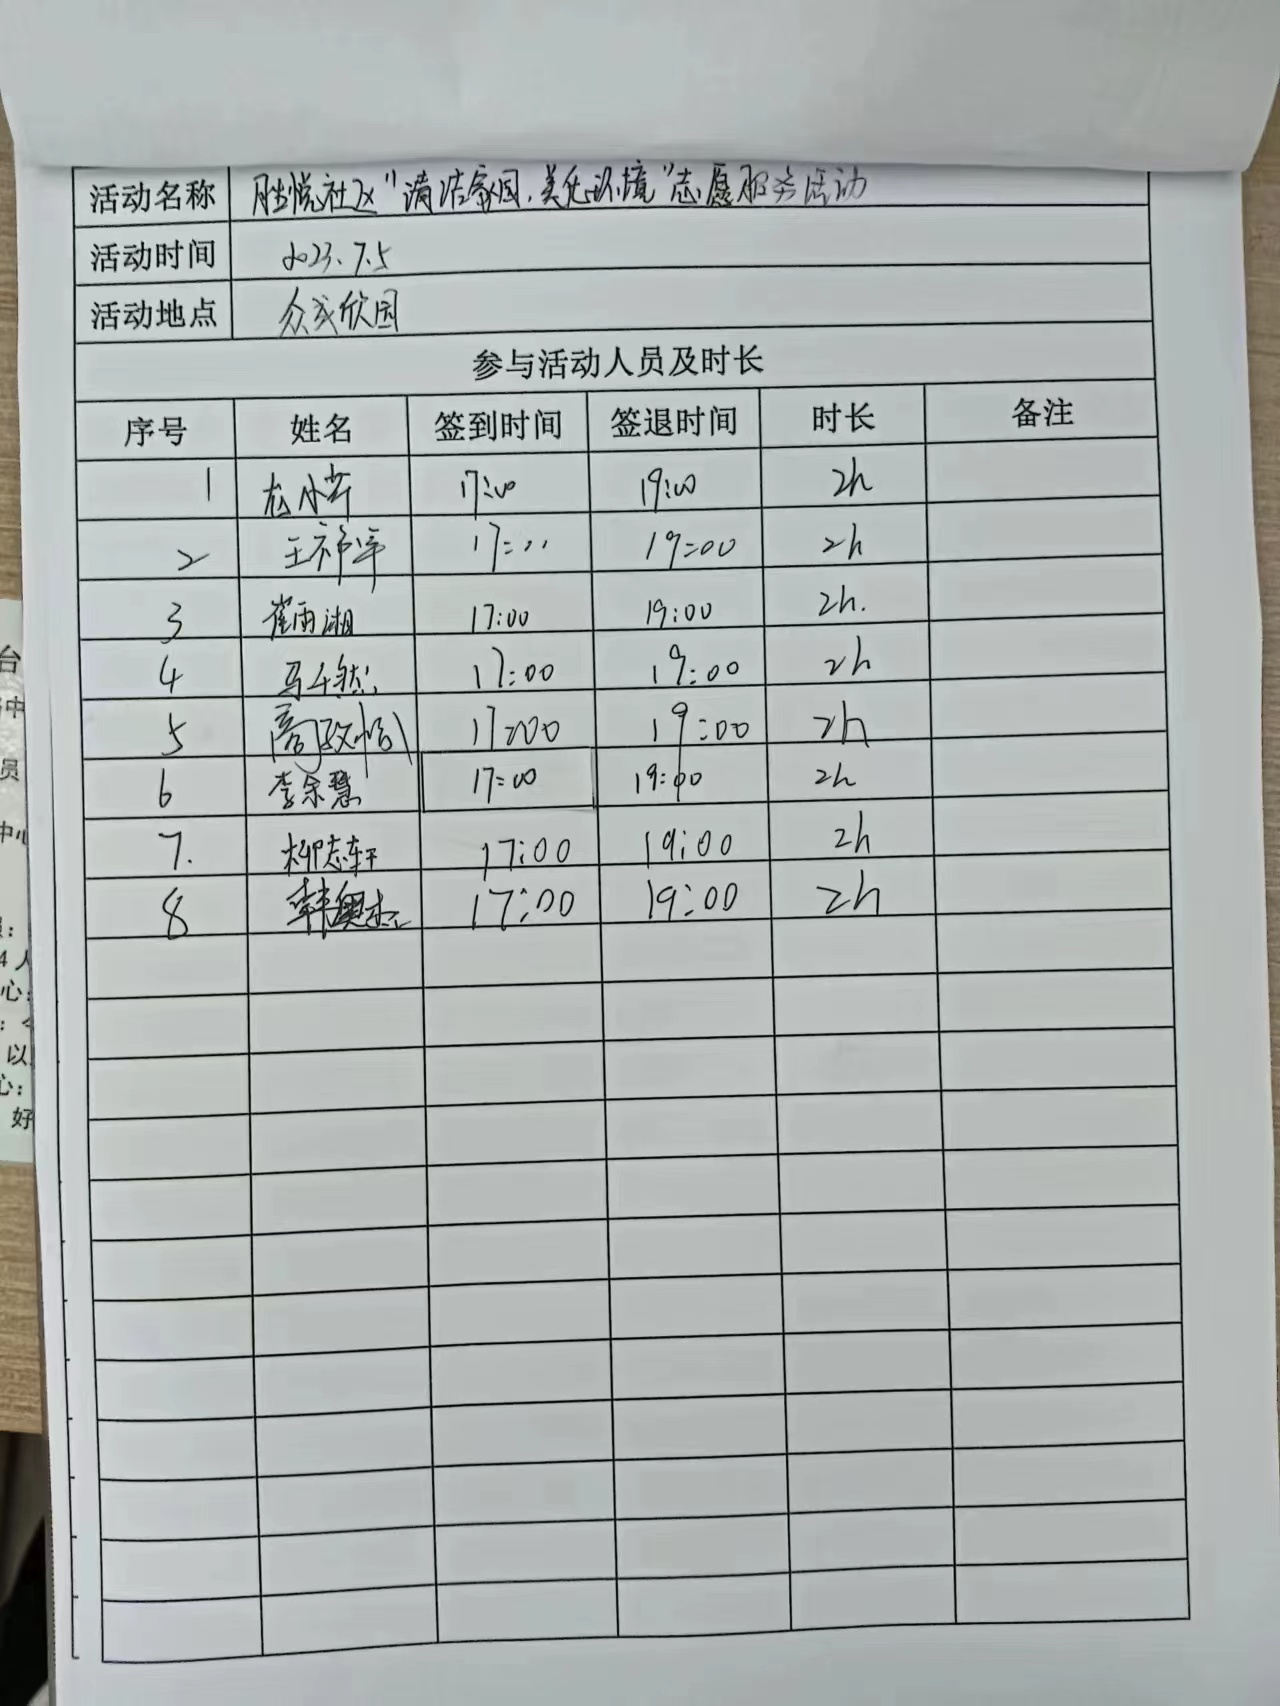 活动名称 胜悦社区"清洁家园,美化环境"志愿服务活动
活动时间 2023.7.5
活动地点 众成欣园
参与活动人员及时长
序号 姓名 签到时间 签退时间 时长 备注
1 17:00 19:00 2h
2 王 17:00 19:00 2h
3 崔雨湘 17:00 19:00 2h.
4 马千然 17:00 19:00 2h
5 17:00 19:00 2h
6 李余慧 17:00 19:00 2h
7. 柳志轩 17:00 19:00 2h
8 韩奥杰 17:00 19:00 2h
台
中
员
中心
:
4人
心:
:
以
心:
好